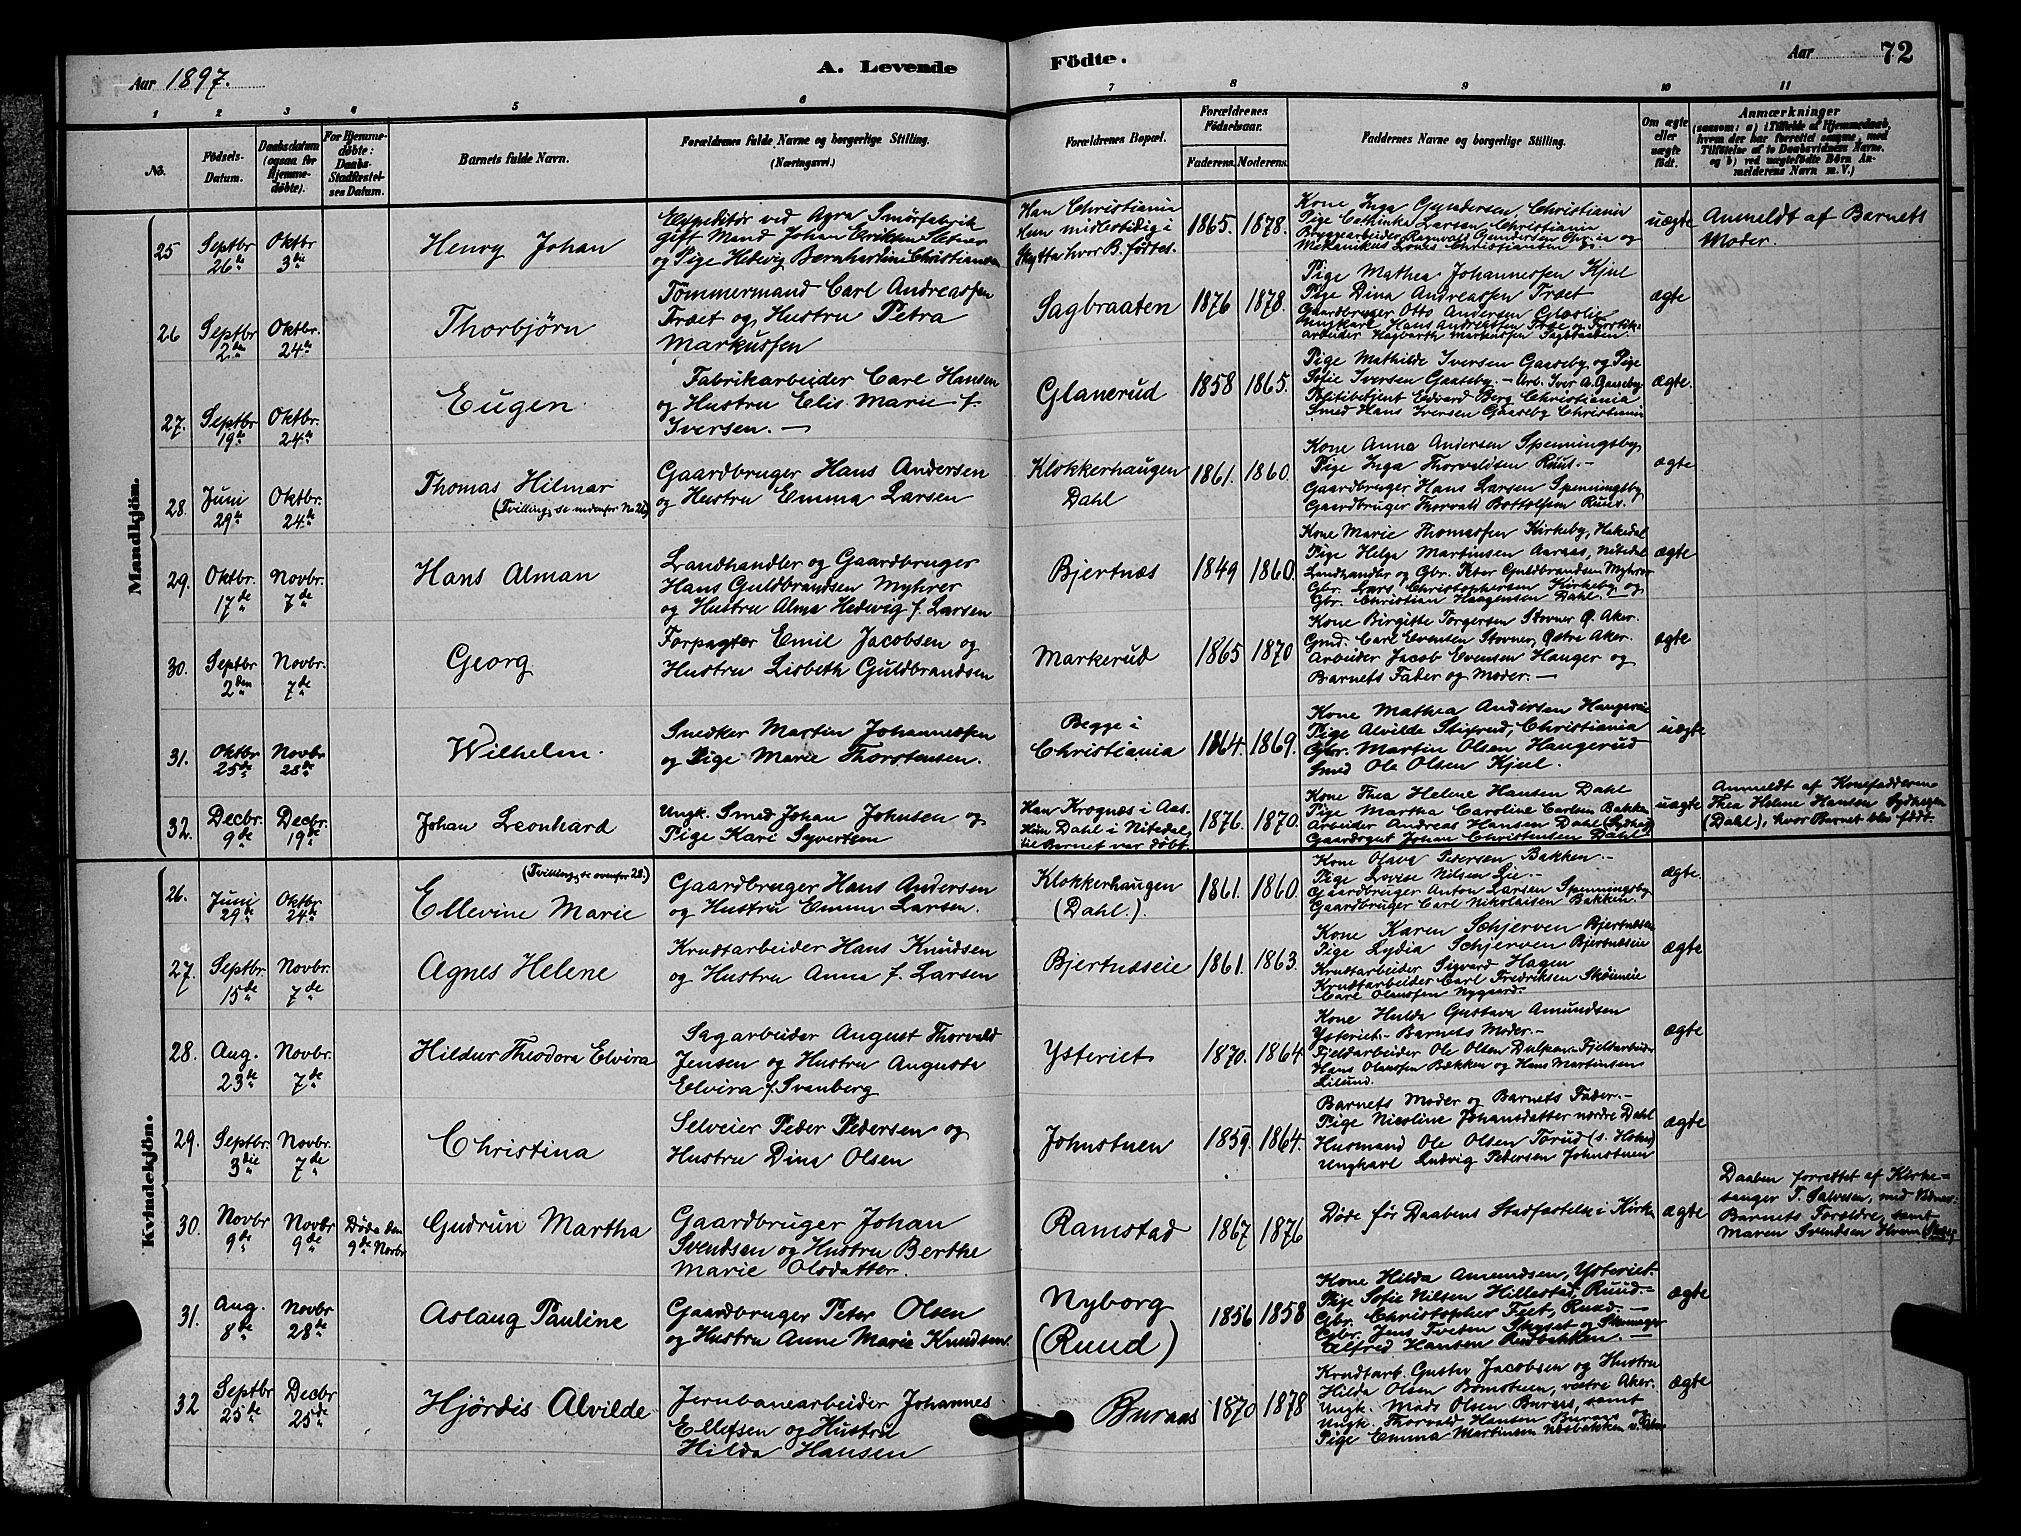 Aar 1897.
A. Levende
Födte.
Aar
72
1 2 3 4 5 6 7 8 9 10 11
No. Födsels-Datum. Daabsdatum (ogsaa for Hjemmedöbte). For Hjemmedöbte: Daabs-Stadfæstelses Datum. Barnets fulde Navn. Forældrenes fulde Navne og borgerlige Stilling. (Næringsvei.) Forældrenes Bopæl. Forældrenes Födselsaar. Faderens. Moderens. Faddernes Navne og borgerlige Stilling. Om ægte eller uægte födt. Anmærkninger (saasom: a) i Tilfælde af Hjemmedaab, hvem der har forrettet samme, med Tilföielse af to Daabsvidners Navne, og b) ved uægtefödte Börn Anmelderens Navn m. V.)
Mandkjön.
25 Septbr 26de Oktbr 3die
Henry Johan
Expeditør ved Agra Smørfabrik
gift Mand Johan Eriksen
og Pige Hedvig Bernhardine Christiansen
Han Christiania
Hun midlertidig i
Skytta hvor B. fødtes.
1865. 1878.
Kone Inga Gundersen, Christiania
Pige Cathinka Larsen Christiania
Bryggearbeider Ragnvald Gundersen Chr.ia og
Mekanikus Louis Christiansen
uægte
Anmeldt af Barnets
Moder.
26 Septbr 2den Oktbr. 24de
Thorbjørn
Tømmermand Carl Andreassen
Træet og Hustru Petra
Markussen
Sagbraaten
1876 1878.
Pige Mathea Johannessen Kjul
Pige Dina Andreassen Træet
Gaardbruger Otto Andersen Glæslie
Ungkarl Hans Andreassen Træe og Fyrstik-
arbeider Hagbarth Markussen Sagbraaten.
ægte
27. Septbr 19de Oktbr. 24de
Eugen
Fabrikarbeider Carl Hansen
og Hustru Elis Marie f.
Iversen. —
Glanerud
1858 1865.
Pige Mathilde Iversen Gaaseby og Pige
Sofie Iversen Gaaseby. — Arb. Iver A. Gaaseby
Politibetjent Edvard Berg Christiania
Smed Hans Iversen Gaaseby Christiania
ægte.
28. Juni 29de Oktbr. 24de
Thomas Hilmar
(Tvilling, se nedenfor No 26)
Gaardbruger Hans Andersen
og Hustru Emma Larsen
Klokkerhaugen
Dahl
1861. 1860.
Kone Anna Andersen Spenningsby
Pige Inga Thorvaldsen Ruus. —
Gaardbruger Hans Larsen Spenningsby
Gaardbruger Thorvald Bottolfsen Ruus.
ægte
29. Oktbr. 17de Novbr. 7de
Hans Alman
Landhandler og Gaardbruger
Hans Guldbrandsen Myhrer
og Hustru Alma Hedevig f. Larsen
Bjertnæs
1849 1860.
Kone Marie Thomassen Kirkeby, Hakedal
Pige Helga Martinsen Aaraas, Nitedal
Landhandler og Gbr. Peter Guldbrandsen Myhrer
Gbr. Lars Christophersen Kirkeby og
Gbr. Christian Haagensen Dahl.
ægte
30. Septbr 2den Novbr. 7de
Georg
Forpagter Emil Jacobsen og
Hustru Lisbeth Guldbrandsen
Markerud
1865 1870
Kone Birgitte Torgersen Stovner Ø. Aker.
Gmd. Carl Evensen Stovner, Østre Aker.
Arbeider Jacob Evensen Hauger og
Barnets Fader og Moder. —
ægte
31. Oktbr 25de Novbr. 28de
Wilhelm.
Snedker Martin Johannessen
og Pige Marie Thorstensen.
Begge i
Christiania
1864. 1869.
Kone Mathea Andersen Haugerud
Pige Alvilde Stigrud, Christiania
Gbr. Martin Olsen Haugerud
Smed Ole Olsen Kjul.
uægte
32. Decbr. 9de Decbr. 19de
Johan Leonhard
Ungk. Smed Johan Johnsen og
Pige Kari Syvertsen
Han Krognæs i Aas.
Hun Dahl i Nitedal,
til Barnet var døbt.
1876. 1870.
Kone Thea Helene Hansen Dahl
Pige Martha Caroline Carlsen Bakken
Arbeider Andreas Hansen Dahl
Gaardsgut Johan Christensen Dahl
uægte
Anmeldt af Konefadderen
Thea Helene Hansen
(Dahl), hvor Barnet blev født.
Kvindekjön.
26. Juni 29de Oktbr 24de
(Tvilling, se ovenfor 28.)
Ellevine Marie
Gaardbruger Hans Andersen
og Hustru Emma Larsen.
Klokkerhaugen
(Dahl.)
1861. 1860.
Kone Olava Pedersen Bakken. —
Pige Lovise Nilsen Lie. —
Gaardbruger Anton Larsen Spenningsby
Gaardbruger Carl Nikolaisen Bakken.
ægte.
27. Septbr. 15de Novbr. 7de
Agnes Helene
Krudtarbeider Hans Knudsen
og Hustru Anna f. Larsen
Bjertnæseie
1861. 1863.
Kone Karen Schjerven Bjertnæseie
Pige Lydia Schjerven Bjertnæseie
Krudtarbeider Sigvard Hagen
Krudtarbeider Carl Fredriksen Skøieneie
Carl Olaussen Nygaard.
ægte
28. Aug. 23de Novbr. 7de
Hildur Theodora Elvira
Sagarbeider August Thorvald
Jensen og Hustru Augusta
Elvira f. Svanberg
Ysteriet
1870. 1864.
Kone Hulda Gustava Amundsen
Ysteriet. — Barnets Moder. —
Fjeldarbeider Ole Olsen Dulpen. Fjeldarbeider
Hans Olaussen Bækken og Hans Martinsen
Lilund.
ægte
29. Septbr. 3die Novbr. 7de
Christina
Selveier Peder Pedersen og
Hustru Dina Olsen
Johnstuen
1859. 1864.
Barnets Moder og Barnets Fader. —
Pige Nicoline Johansdatter nordre Dahl
Husmand Ole Olsen Torud (s. Holm)
Ungkarl Ludvig Pedersen Johnstuen
ægte
30. Novbr 9de Novbr. 9de Døde den 9de Novbr
Gudrun Martha
Gaardbruger Johan
Svendsen og Hustru Berthe
Marie Olsdatter.
Ramstad
1867 1876
Døde før Daabens Stadfæstelse i Kirken
ægte
Daaben forrettet af Kirke-
sanger T. Salvesen, med Vidner
Barnets Forældre, samt
Maren Svendsen Hvam
31. Aug. 8de Novbr 28de
Aslaug Pauline
Gaardbruger Peter Olsen
og Hustru Anne Marie Knudsen.
Nyborg
(Ruud)
1856 1858
Kone Hilda Amundsen, Ysteriet.
Pige Sofie Nilsen Hillestad, Ruud. —
Gbr. Christopher Feet, Ruud. —
Gbr. Jens Tveten Skyset og Skomager
Alfred Hansen Rudbakken. —
ægte
32 Septbr 25de Decbr 25de
Hjørdis Alvilde
Jernbanearbeider Johannes
Ellefsen og Hustru
Hilda Hansen
Buraas
1870 1878
Krudtarb. Gustav Jacobsen og Hustru
Hilda Olsen Bomstuen, vestre Aker.
Ungk. Mads Olsen Buraas, samt
Ungk. Thorvald Hansen Buraas og
Pige Emma Martinsen
ægte